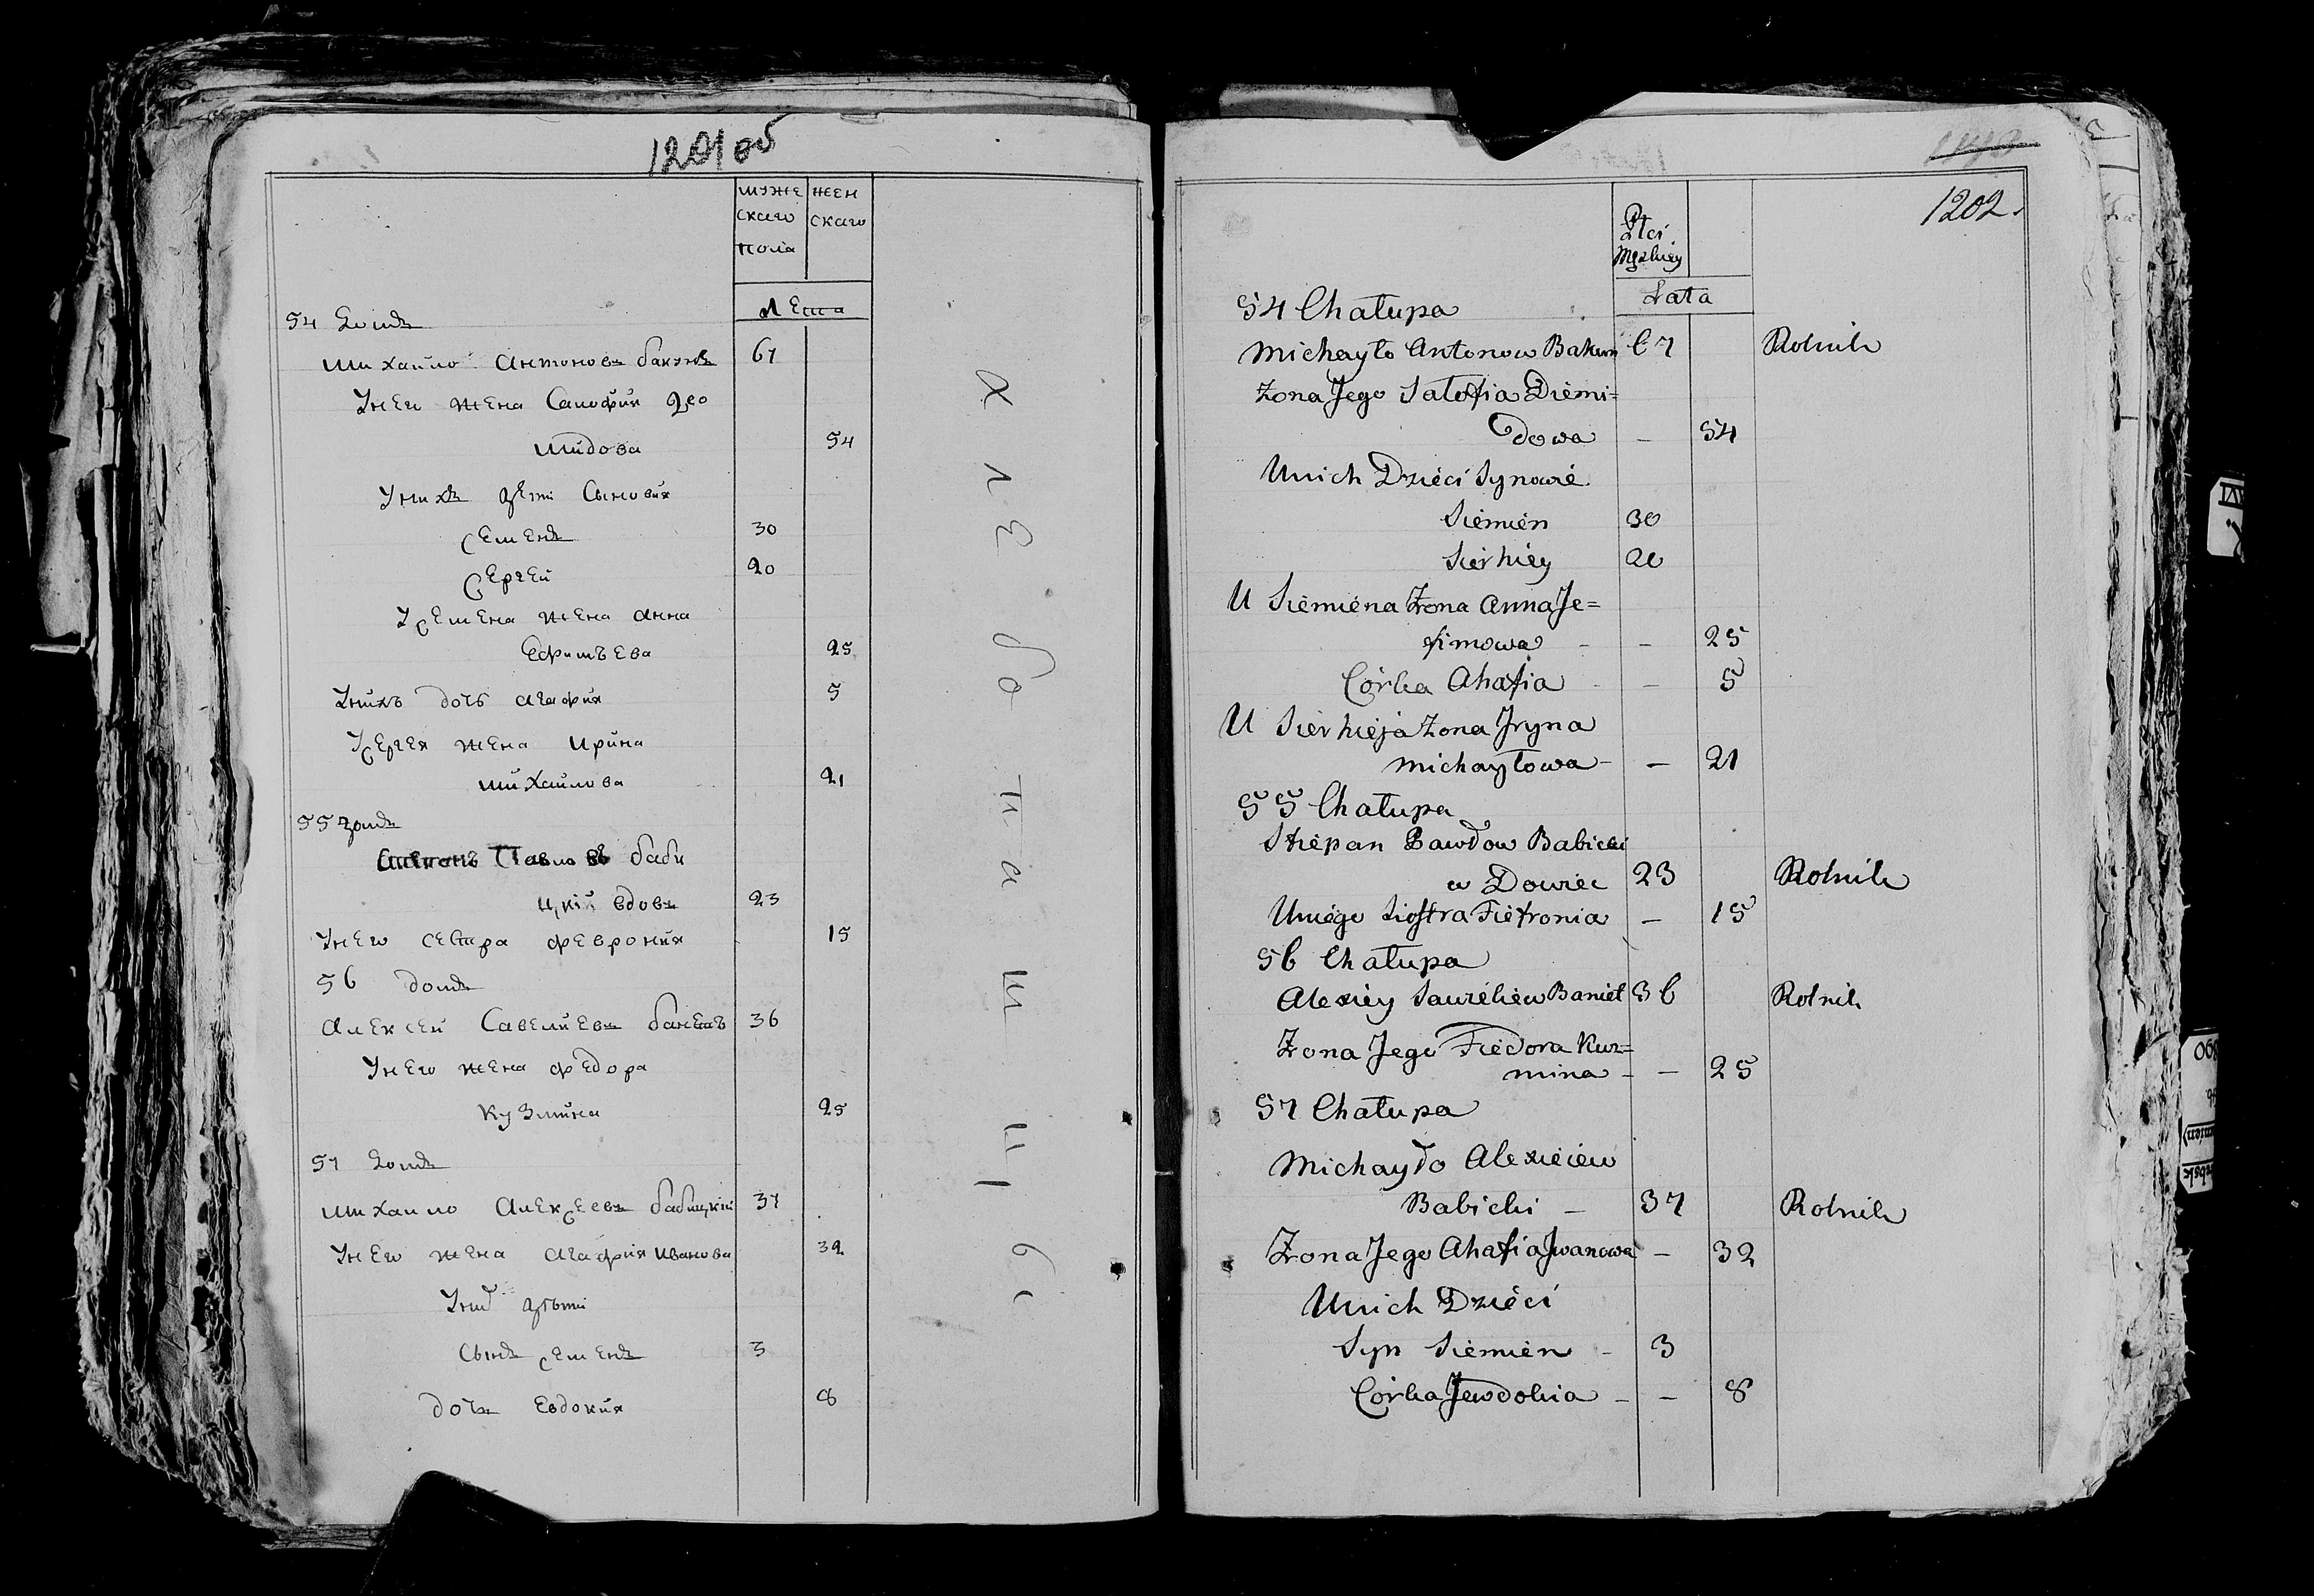 1201 об
муже
скаго
пола
жен
скаго
лета
54 Домъ
Михайло Антоновъ Бакунъ 67
У него жена Салофия Део
мидова 54
У нихъ дети Сыновия
Семенъ 30
Сергей 20
У Семена жена Анна
Ефимъева 25
У нихъ дочь Агафия 5
У Сергея жена Ирина
Михайлова 21
55 Домъ
Павловъ Баби
цкій вдовъ 23
У него сестра Феврония 15
56 домъ
Алексей Савелиевъ 36
У него жена Федора
Кузмина 25
57 Домъ
Михайло Алексеевъ Бабицкій 37
У него жена Агафія Иванова 32
дѣти
Сынъ Семенъ 3
дочъ Евдокия 8
хлебопашцы
1202.
Płci
Męzkiey
Lata
54 Chałupa
Michayło Antonow Bakun 67 Rolnik
Żona Jego Sałofia Diemi=
dowa - 54
U nich Dzieci Synowie
Siemien 30
Sierhiey 20
U Siemiena Żona Anna Je=
fimowa - - 25
Córka Ahafia - - 5
U Sierhieja Żona Jryna
Michayłowa - - 21
55 Chałupa
Stiepan Pawłow Babicki
w Dowiec 23 Rolnik
U niego Siostra Fietronia - 15
56 Chałupa
Alexiey Sawieliew 36 Rolnik
Żona Jego Fiedora Kuz=
mina - - 25
57 Chałupa
Michayło Alexieiew
Babicki - 37 Rolnik
Żona Jego Ahafia Jwanowa - 32
U nich Dzieci
Syn Siemien - 3
Córka Jewdokia - - 8